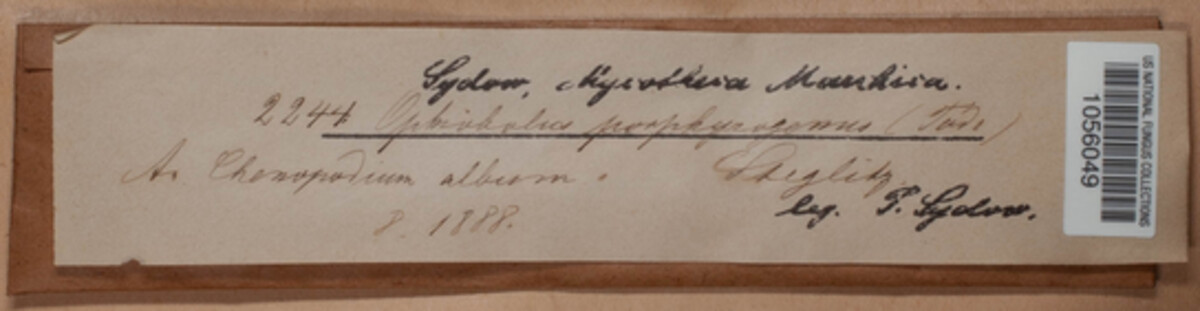 Sydow, Mycotheca Marchica.
2244 Ophiobolus porphyrogonus (Tode)
An Chenopodium album. Steglitz
8. 1888. leg. P. Sydow.
US NATIONAL FUNGUS COLLECTIONS
1056049